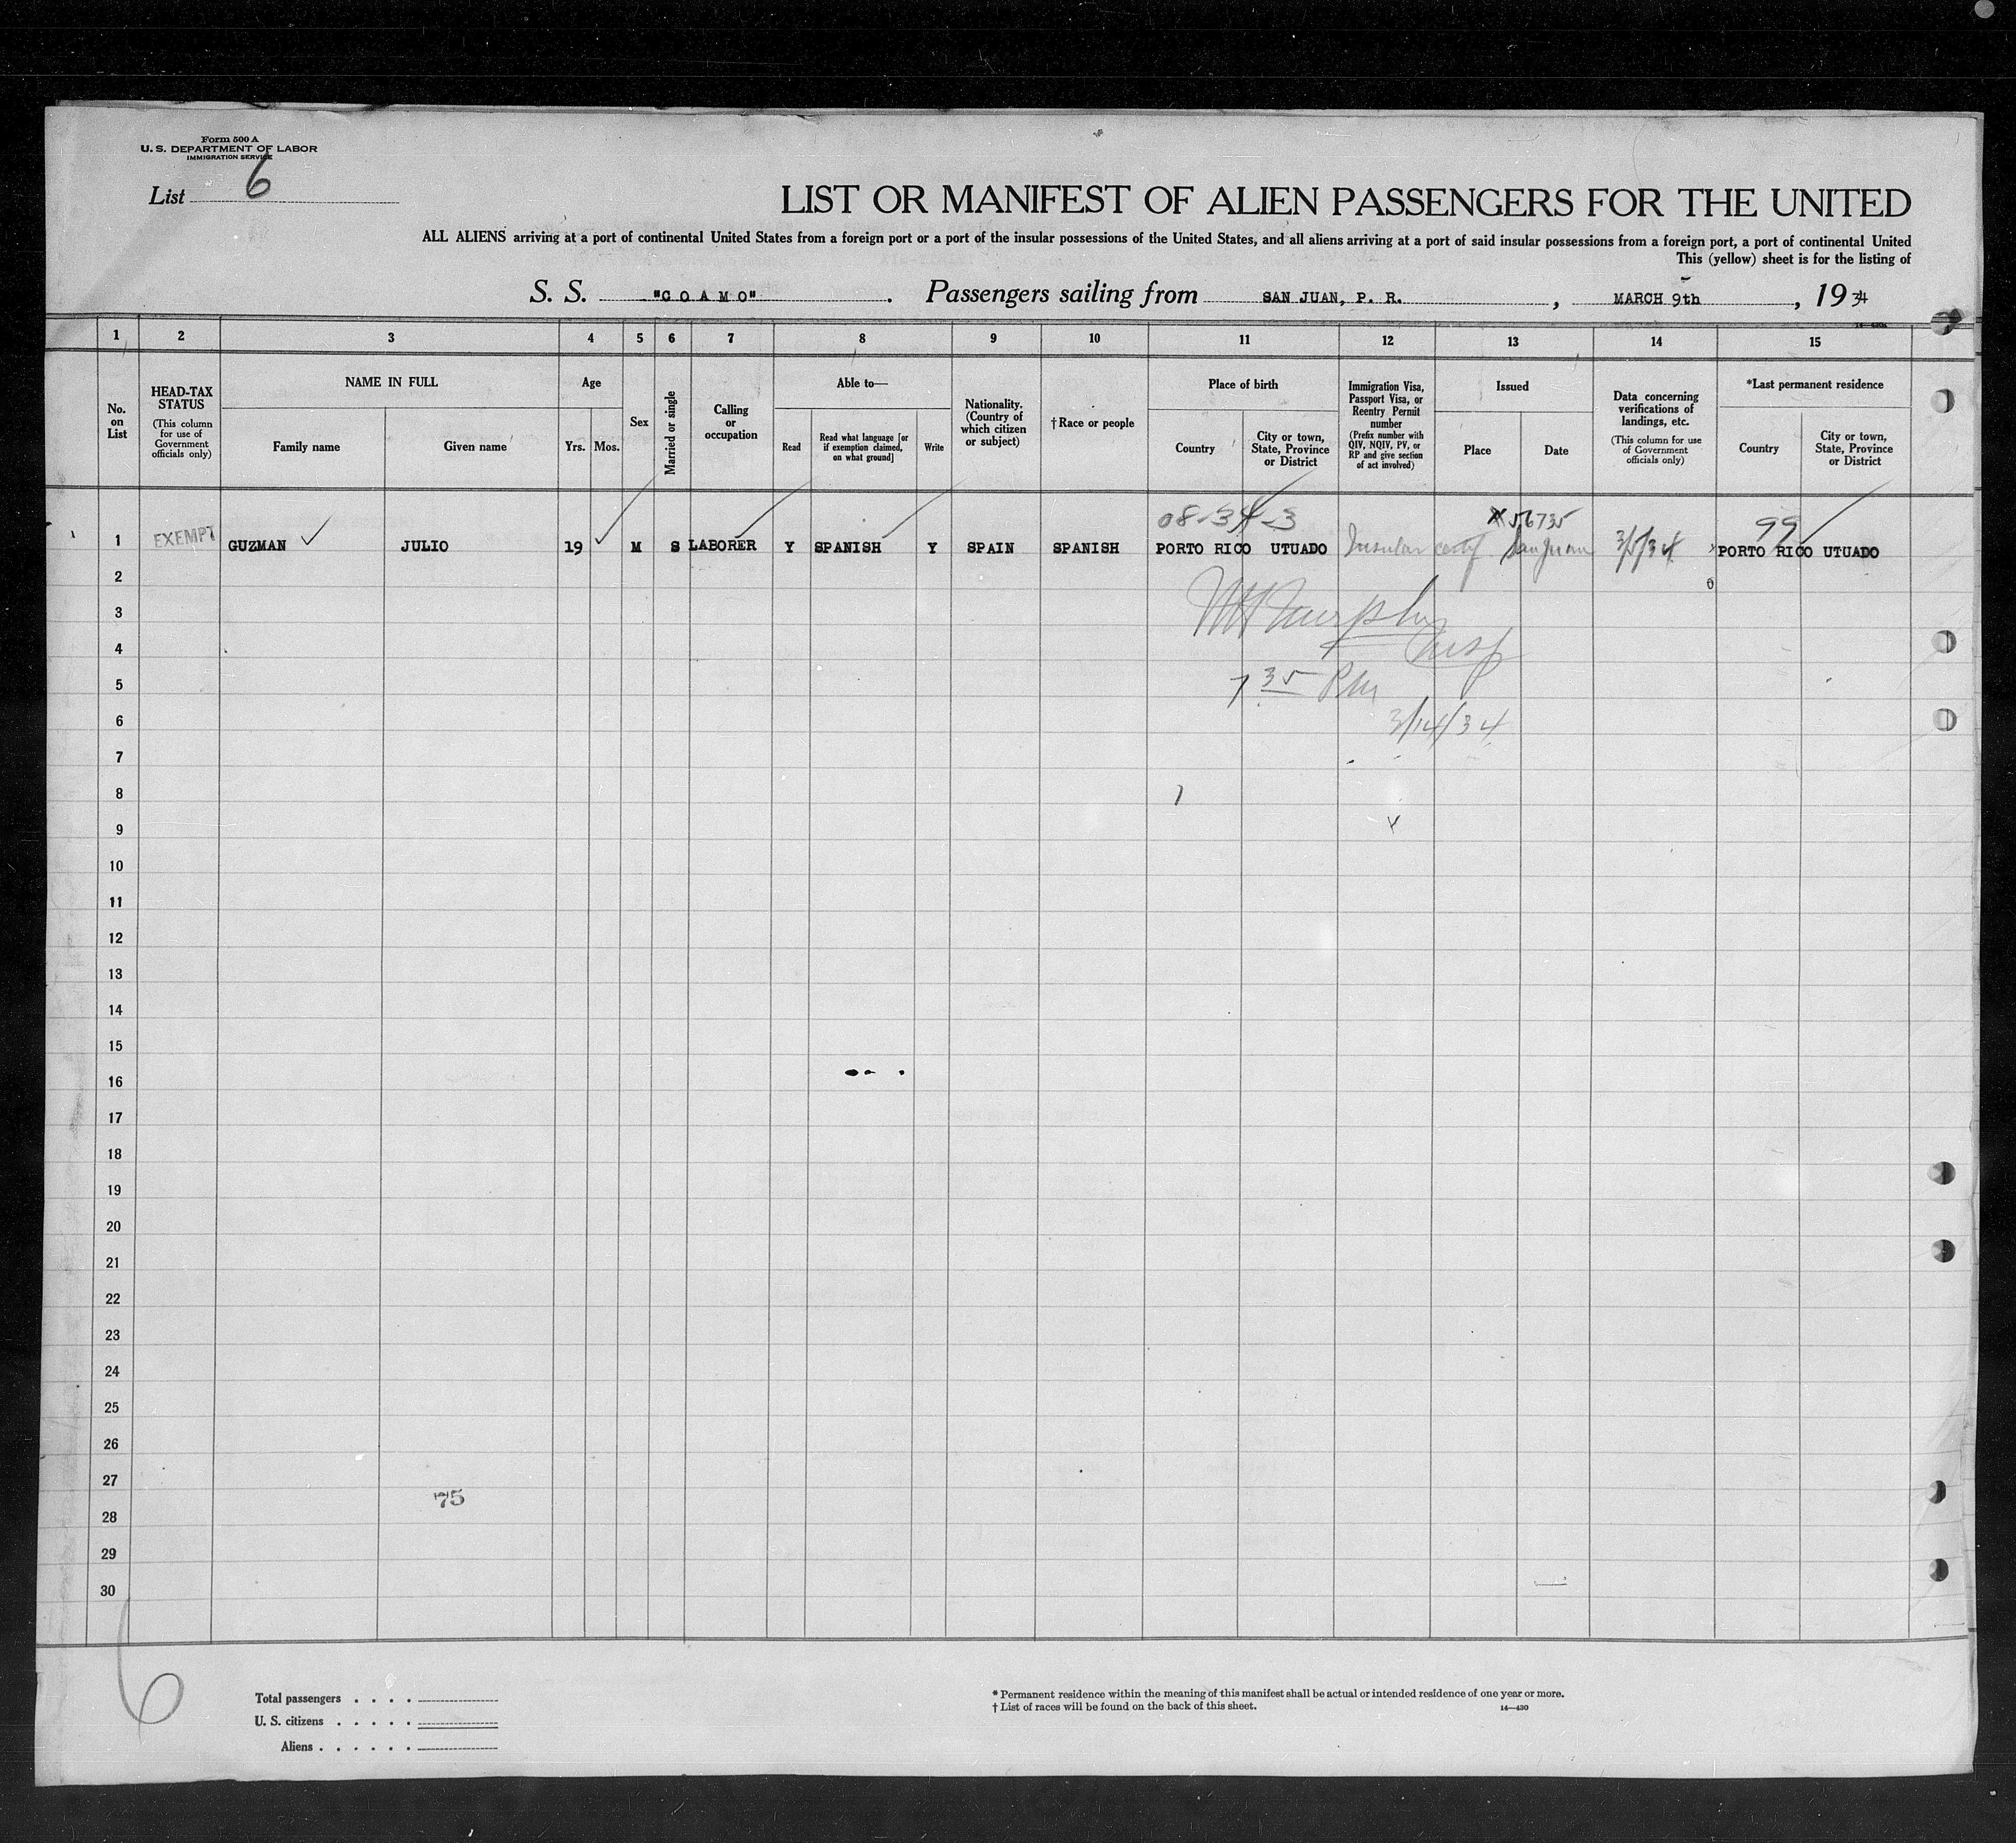 Form 500 A
U. S. DEPARTMENT OF LABOR
IMMIGRATION SERVICE
List 6
LIST OR MANIFEST OF ALIEN PASSENGERS FOR THE UNITED
ALL ALIENS arriving at a port of continental United States from a foreign port or a port of the insular possessions of the United States, and all aliens arriving at a port of said insular possessions from a foreign port, a port of continental United
This (yellow) sheet is for the listing of
S. S. "COAMO". Passengers sailing from SAN JUAN, P. R., MARCH 9th, 1934
1 2 3 4 5 6 7 8 9 10 11 12 13 14 15
No. on List
HEAD-TAX STATUS
(This column for use of Government officials only)
NAME IN FULL
Family name Given name
Age
Yrs. Mos.
Sex
Married or single
Calling or occupation
Able to—
Read
Read what language [or if exemption claimed, on what ground]
Write
Nationality. (Country of which citizen or subject)
†Race or people
Place of birth
Country
City or town, State, Province or District
Immigration Visa, Passport Visa, or Reentry Permit number
(Prefix number with QIV, NQIV, PV, or RP and give section of act involved)
Issued
Place Date
Data concerning verifications of landings, etc.
(This column for use of Government officials only)
*Last permanent residence
Country
City or town, State, Province or District
08-34-3 56735 99
1 EXEMPT GUZMAN JULIO 19 M S LABORER Y SPANISH Y SPAIN SPANISH PORTO RICO UTUADO Insular certf. San Juan 3/5/34 PORTO RICO UTUADO
2
3 Murphy
4 Insp
5 7 35 PM
6 3/14/34
7
8
9
10
11
12
13
14
15
16
17
18
19
20
21
22
23
24
25
26
27
75
28
29
30
6
Total passengers . . . .
U. S. citizens . . . . .
Aliens . . . . . .
* Permanent residence within the meaning of this manifest shall be actual or intended residence of one year or more.
† List of races will be found on the back of this sheet.
14—430